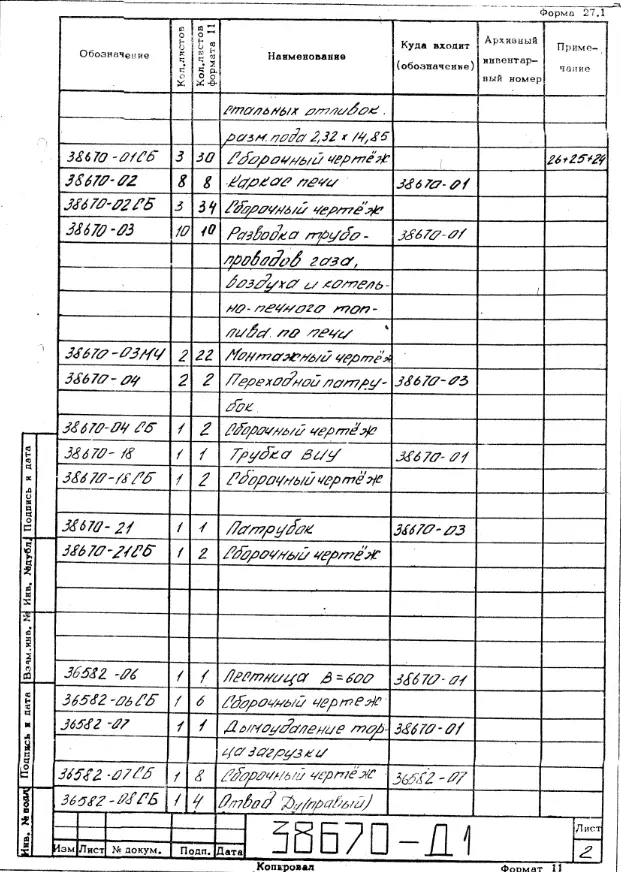 Форма 27.1
Обозначение Кол.листов Кол.листов формата 11 Наименование Куда входит (обозначение) Архивный инвентарный номер Примечание
стальных отливок.
разм. пода 2,32 х 14,85
38670-01СБ 3 30 Сборочный чертёж 26+25+24
38670-02 8 8 Каркас печи 38670-01
38670-02СБ 3 34 Сборочный чертёж
38670-03 10 10 Разводка трубо- 38670-01
проводов газа,
воздуха и котель-
но-печного топ-
лива по печи
38670-03МЧ 2 22 Монтажный чертёж
38670-04 2 2 Переходной патру- 38670-03
бок
38670-04 СБ 1 2 Сборочный чертёж
38670-18 1 1 Трубка ВИУ 38670-01
38670-18СБ 1 2 Сборочный чертёж
38670-21 1 1 Патрубок 38670-03
38670-21СБ 1 2 Сборочный чертёж
36582-06 1 1 Лестница В=600 38670-01
36582-06СБ 1 6 Сборочный чертеж
36582-07 1 1 Дымоудаление тор- 38670-01
ца загрузки
36582-07СБ 1 8 Сборочный чертёж 36582-07
36582-08СБ 1 4 Отвод Ду(правый)
Инв. № подл. Подпись и дата Взам.инв. № Инв. №дубл. Подпись и дата
38670-Д1
Лист
2
Изм Лист № докум. Подп. Дата
Копировал Формат 11